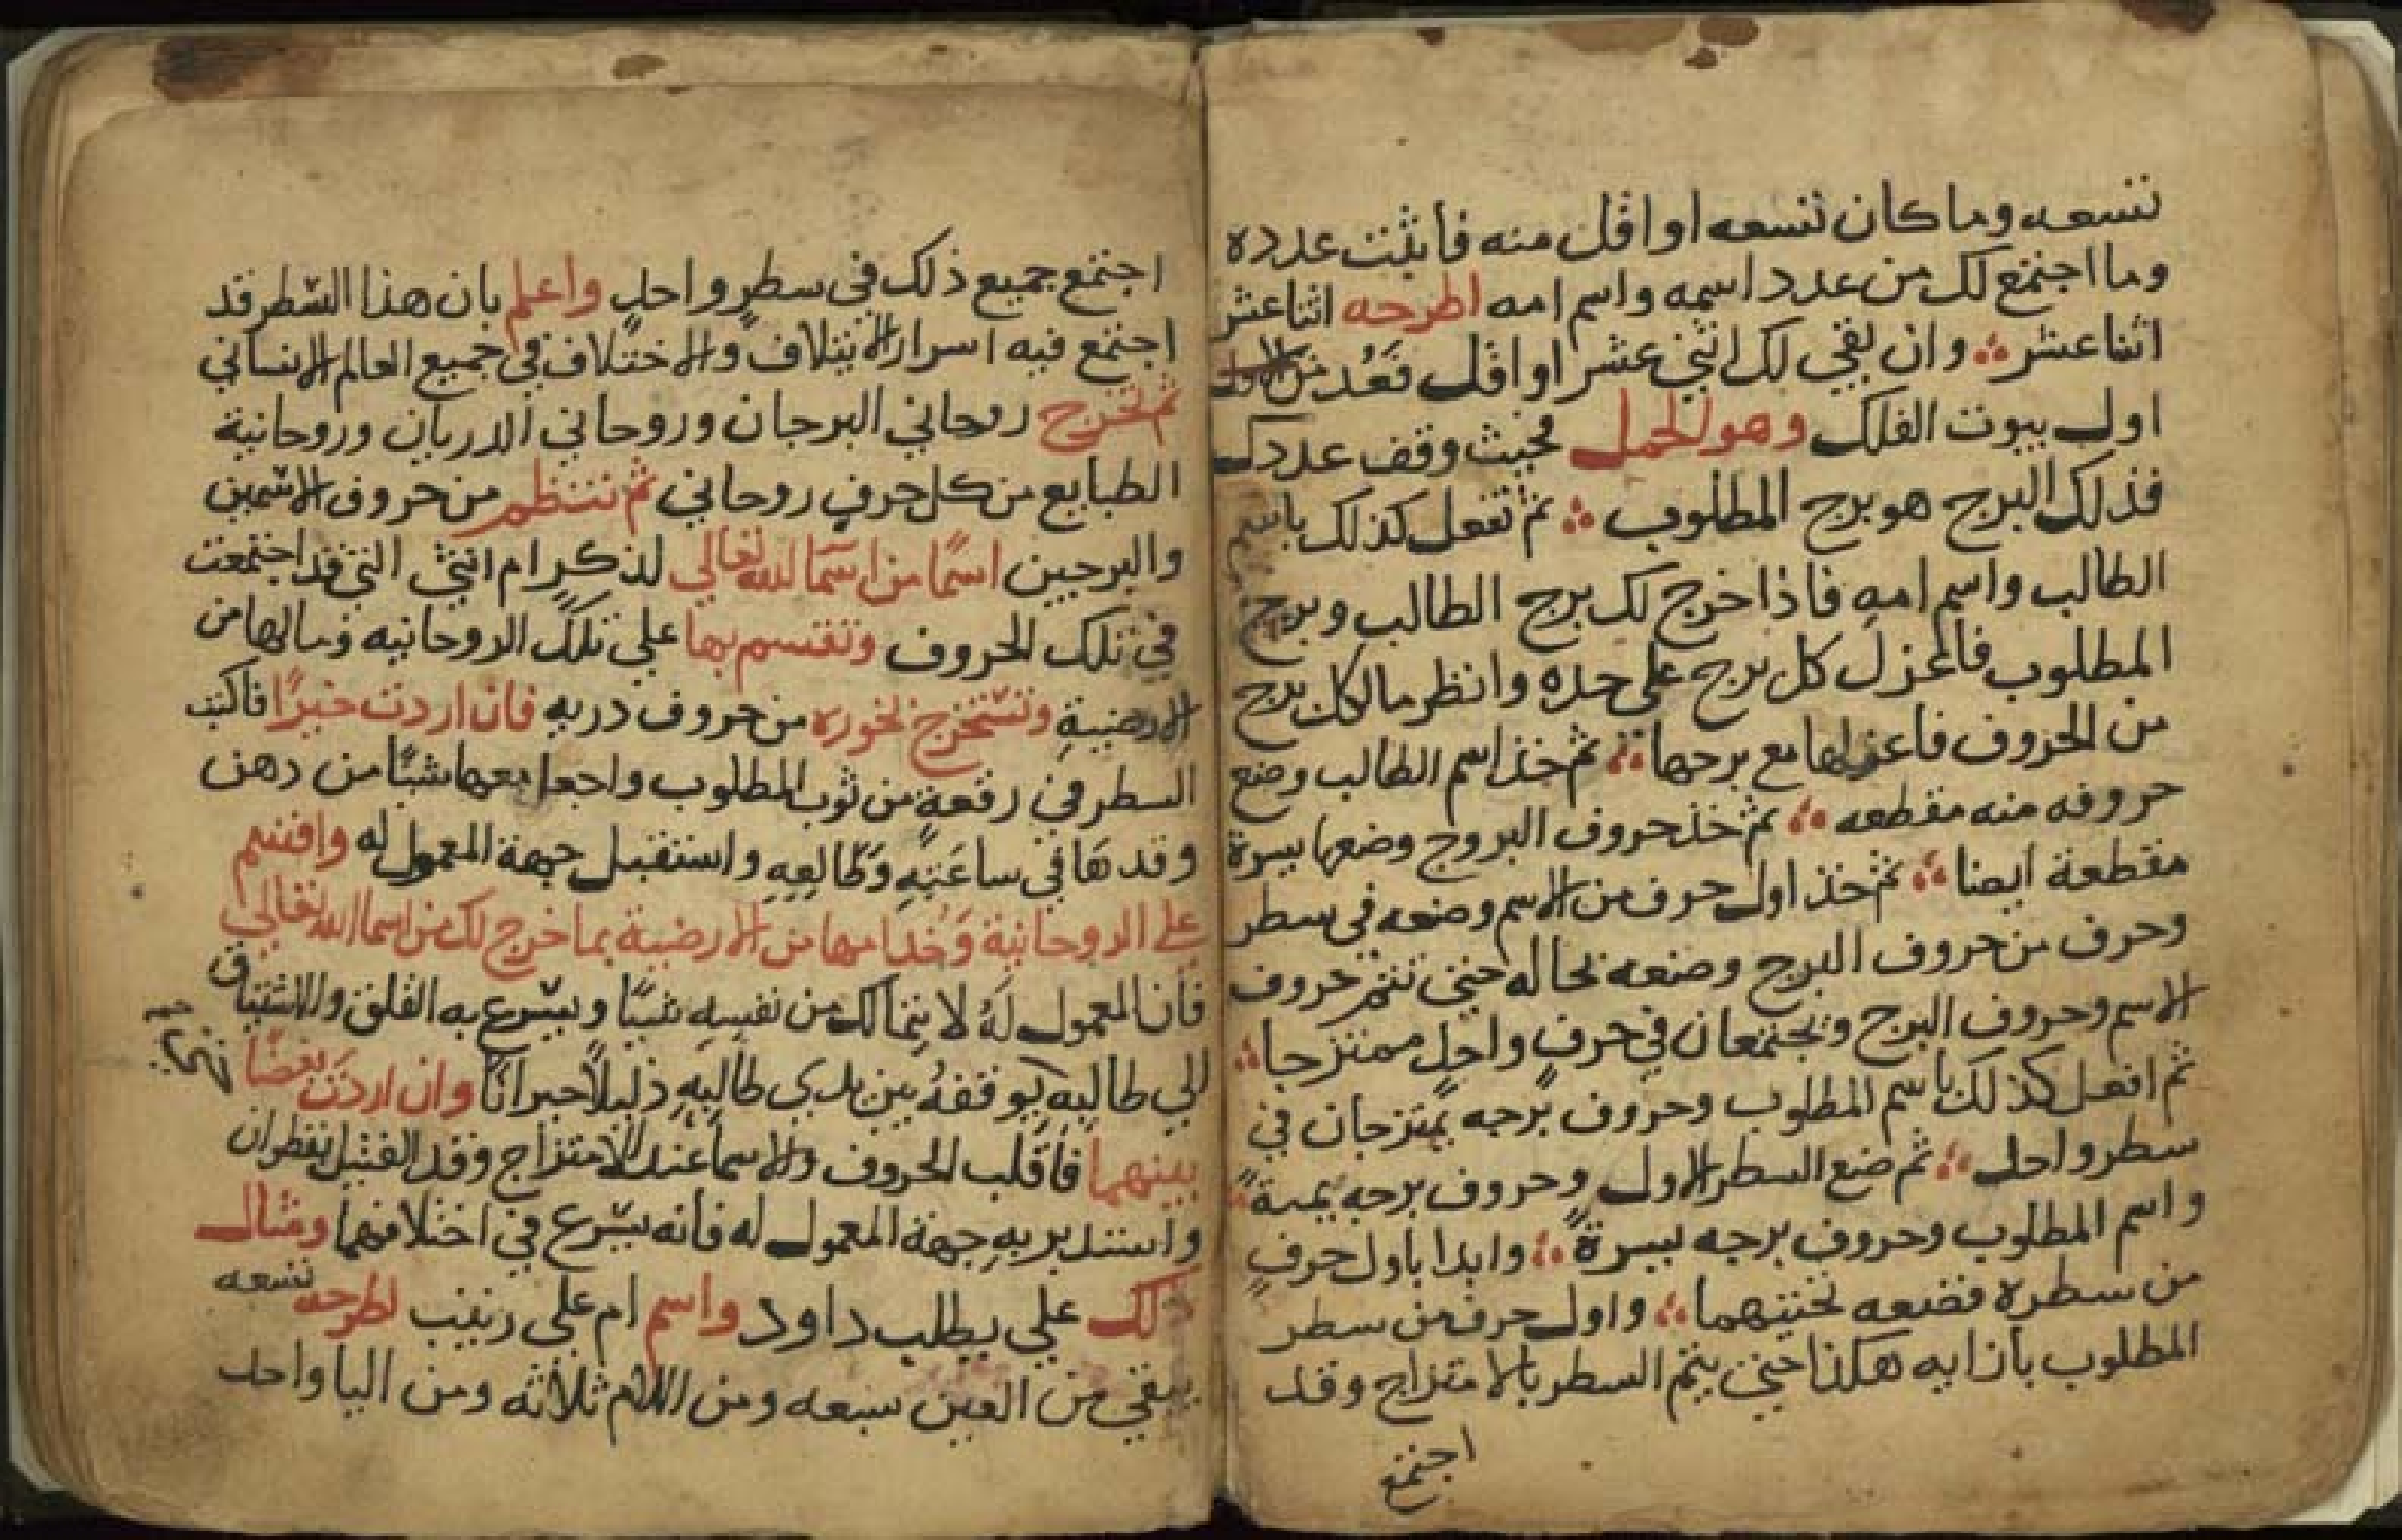 تسعه وما كان تسعه او اقل منه فأثبت عدده
وما اجتمع لك من عدد اسمه واسم امه اطرحه اثناعشر
اثناعشر وان بقي لك اثني عشر او اقل فَعُد من
اول بيوت الفلك وهو الحمل فحيث وقف عددك
فذلك البرج هو برج المطلوب ثم تفعل كذلك باسم
الطالب واسم امه فاذا خرج لك برج الطالب وبرج
المطلوب فاعزل كل برج على حده وانظر ما لكل برج
من الحروف فاعزلها مع برجها ثم خذ اسم الطالب وضع
حروفه منه مقطعه ثم خذ حروف البروج وضعها يسرة
مقطعة ايضا ثم خذ اول حرف من الاسم وضعه في سطر
وحرف من حروف البرج وضعه بحاله حتى تتم حروف
الاسم وحروف البرج ويجتمعان في حرفٍ واحدٍ ممتزجا
ثم افعل كذلك باسم المطلوب وحروف برجه يمتزجان في
سطر واحد ثم ضع السطر الاول وحروف برجه يمنة
واسم المطلوب وحروف برجه يسرة وابدا بأول حرفٍ
من سطره فضعه تحتيهما واول حرف من سطر
المطلوب بازايه هكذا حتى يتم السطر بالامتزاج وقد
اجتمع
اجتمع جميع ذلك في سطرٍ واحدٍ واعلم بان هذا السّطر قد
اجتمع فيه اسرار الايتلاف والاختلاف في جميع العالم الانساني
ثم تخرج روحاني البرجان وروحاني الدربان وروحانية
الطبايع من كل حرفٍ روحاني ثم تنتظم من حروف الاسمين
والبرجين اسمًا من اسمَا الله تعالي لذكرٍ ام انثى التي قد اجتمعت
في تلك الحروف وتقسم بها علي تلك الروحانيه ومالها من
الارضيةِ وتستخرج بخوره من حروف دربه فان اردت خيرًا فاكتب
السطر في رقعةٍ من ثوب المطلوب واجعل معها شيًا من دهن
وقدهَا في ساعَتِهِ وَطالعِهِ واستقبل جهة المعمول له واقسم
علي الروحانية وَخدامها من الارضية بما خرج لك من اسما الله تعالي
فان المعمول لَهُ لا يتمالك من نفسِهِ شيًا ويسّرع به القلق والاشتياق
الي طالبِه يوقفهُ بين يدي طالبِهِ ذليلاً حيرانًا وان اردت بغضًا
بينهما فأقلب الحروف والاسما عند الامتزاج وقد الفتيل بقطران
واستدبر بهِ جهة المعمول له فانه يسّرع في اختلافهما ومثال
ذلك علي يطلب داود واسم ام علي زينب اطرحه تسعه
يبقي من العين سبعه ومن اللام ثلاثه ومن اليا واحد